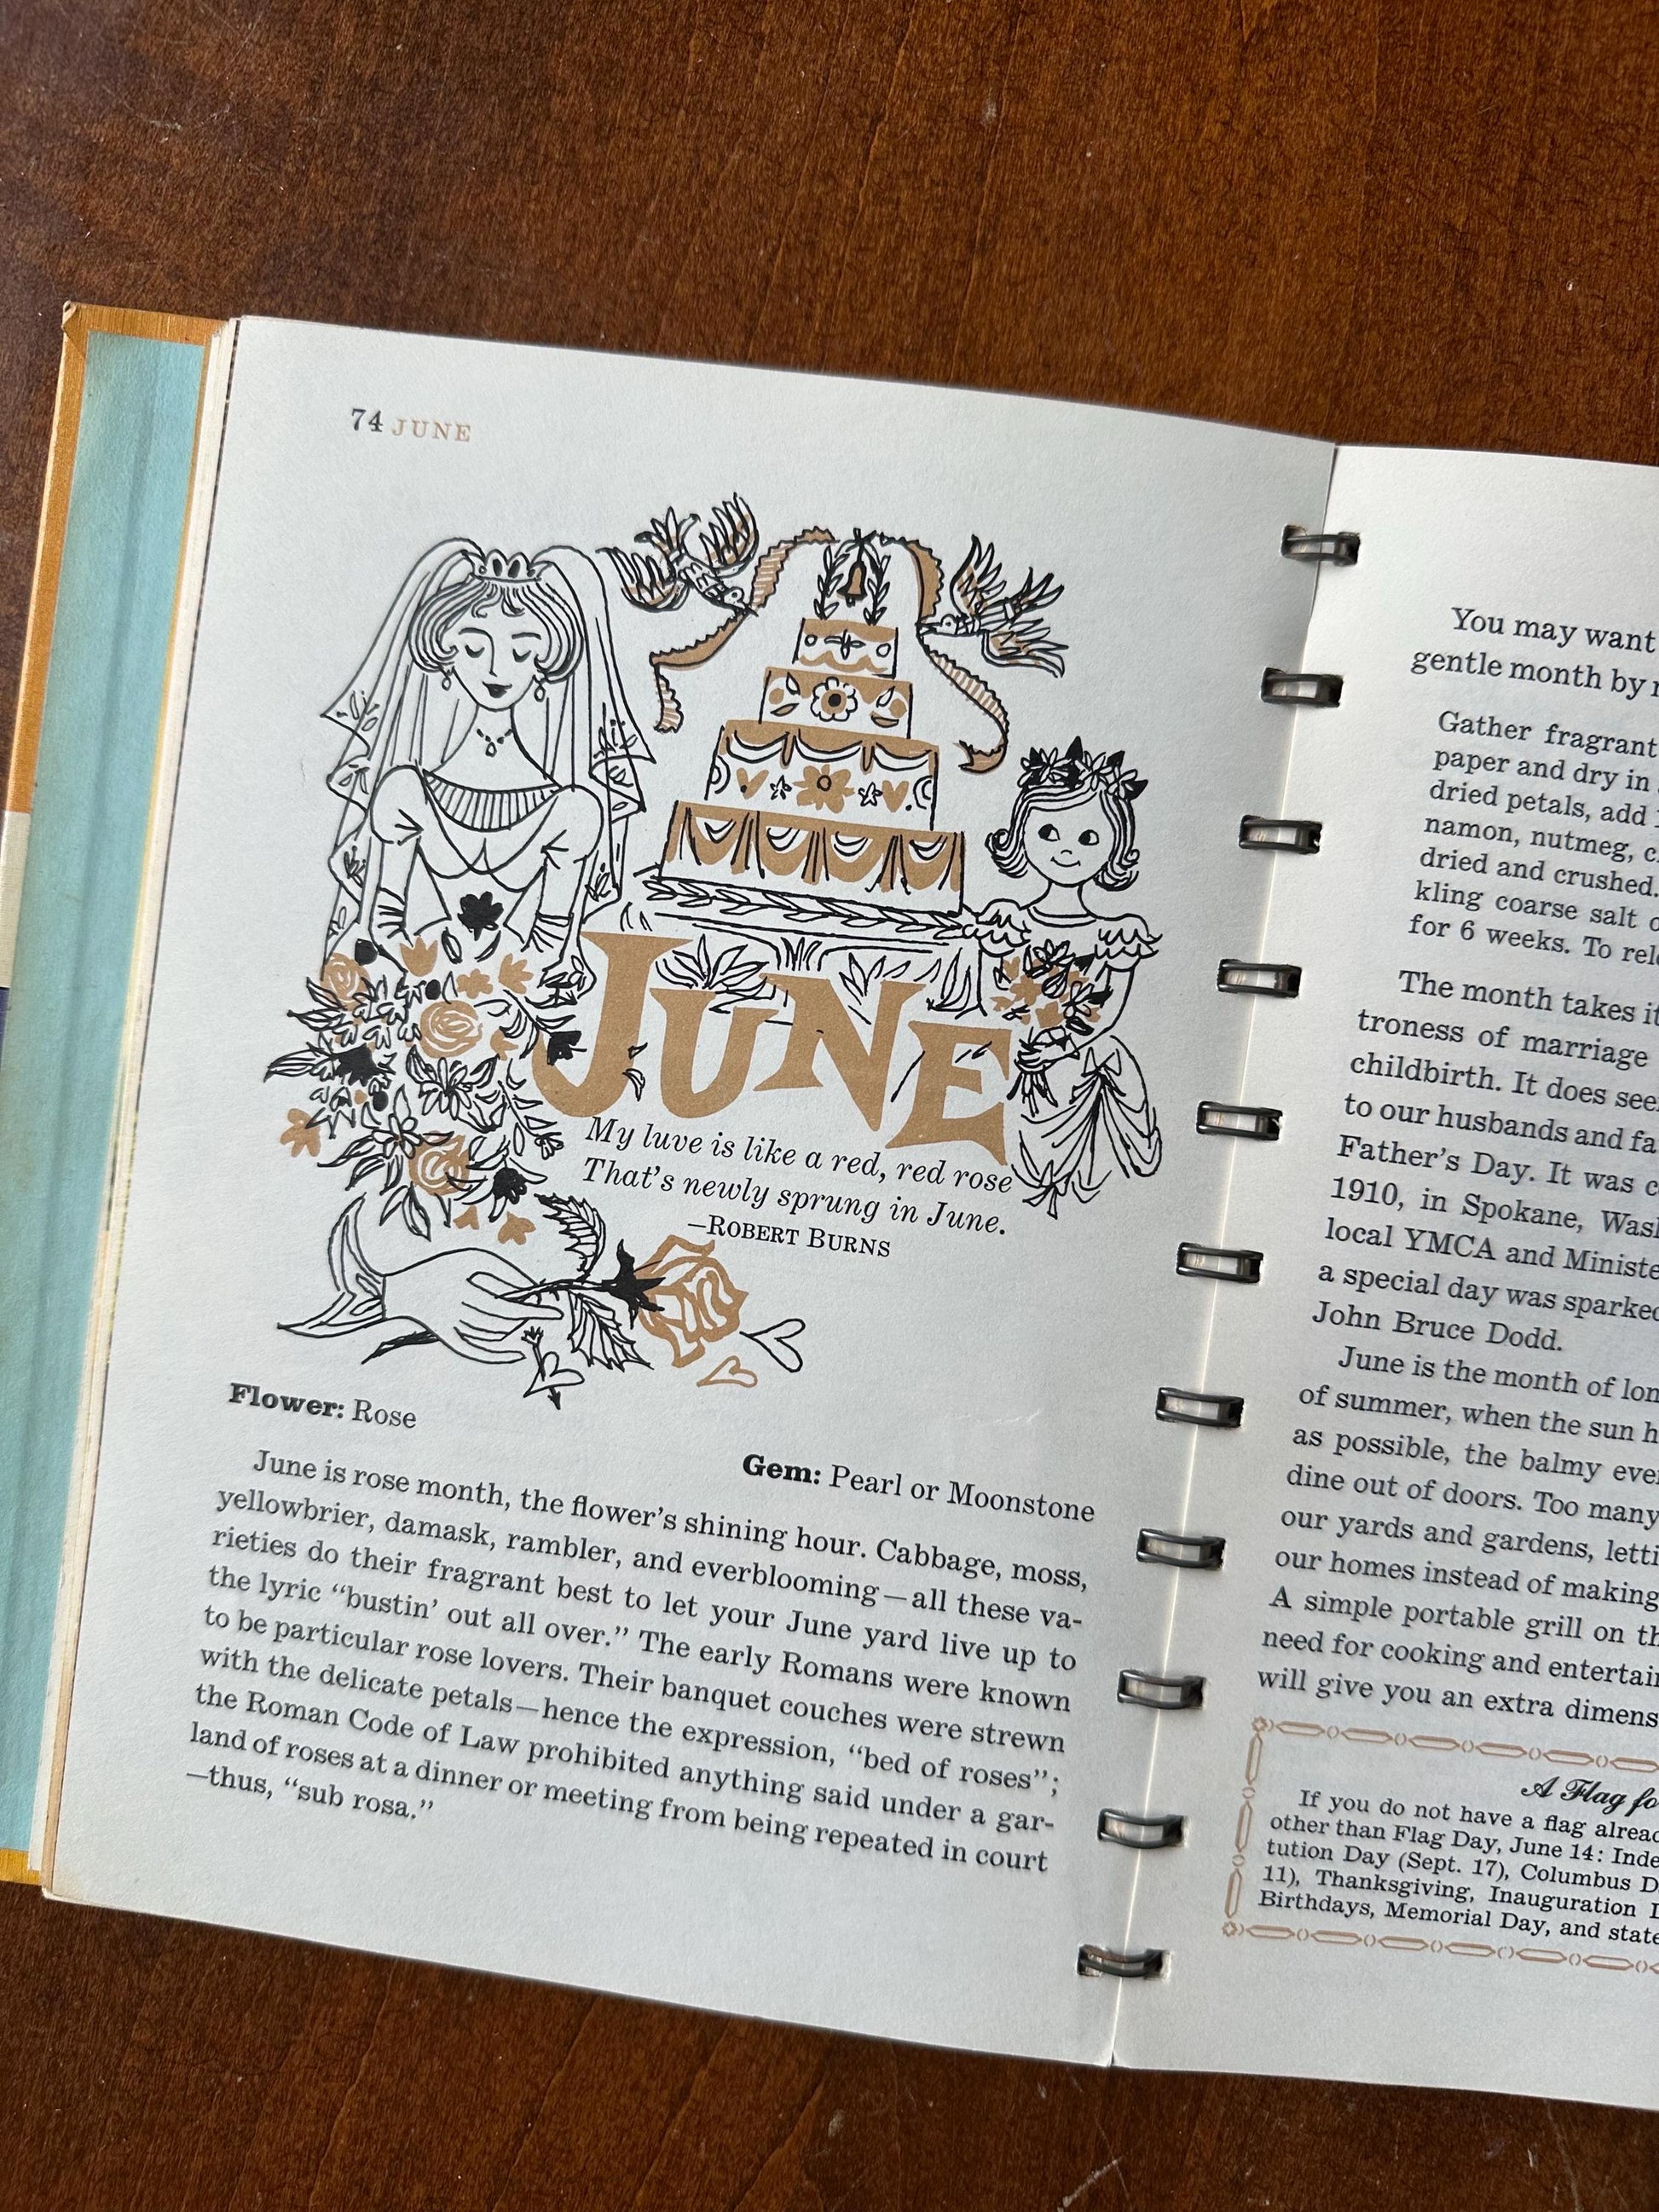 74 JUNE
JUNE
My luve is like a red, red rose
That's newly sprung in June.
—ROBERT BURNS
Flower: Rose
Gem: Pearl or Moonstone
June is rose month, the flower's shining hour. Cabbage, moss,
yellowbrier, damask, rambler, and everblooming—all these va-
rieties do their fragrant best to let your June yard live up to
the lyric “bustin' out all over.” The early Romans were known
to be particular rose lovers. Their banquet couches were strewn
with the delicate petals—hence the expression, “bed of roses”;
the Roman Code of Law prohibited anything said under a gar-
land of roses at a dinner or meeting from being repeated in court
—thus, “sub rosa.”
You may want
gentle month by
Gather fragrant
paper and dry in
dried petals, add
namon, nutmeg,
dried and crushed.
kling coarse salt
for 6 weeks. To
The month takes
troness of marriage
childbirth. It does
to our husbands and
Father's Day. It was
1910, in Spokane,
local YMCA and
a special day was
John Bruce Dodd.
June is the month of
of summer, when the sun
as possible, the balmy
dine out of doors. Too many
our yards and gardens,
our homes instead of making
A simple portable grill on
need for cooking and
will give you an extra
A Flag
If you do not have a flag
other than Flag Day, June 14:
tution Day (Sept. 17), Columbus
11), Thanksgiving, Inauguration
Birthdays, Memorial Day, and